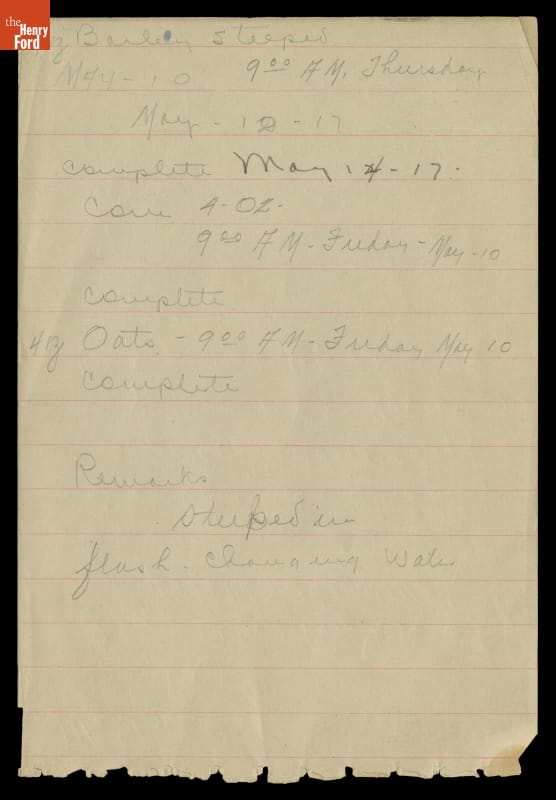 the
Henry
Ford
Barley steeped
May - 10 9 00 A M. Thursday
May - 12 - 17
complete May 14 - 17.
Corn 4 - OZ -
9 00 A M - Friday - May - 10
complete
4 oz Oats - 9 00 A M - Friday May 10
complete
Remarks
steeped in
flash - changing Water